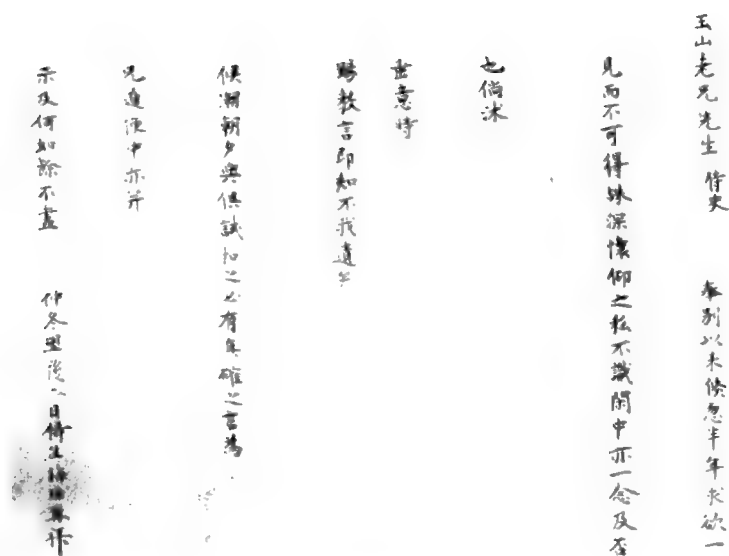 玉山老兄先生 侍史 奉别以来倏忽半年求欲一
見而不可得殊深懷仰之私不識閑中亦一念及否
也倘沐
盅意時
賜教言即知不我遺矣
候潮朝夕與俱試扣之必有真確之言為
兄道便中亦并
示及何如餘不盡 仲冬望後八日侍生